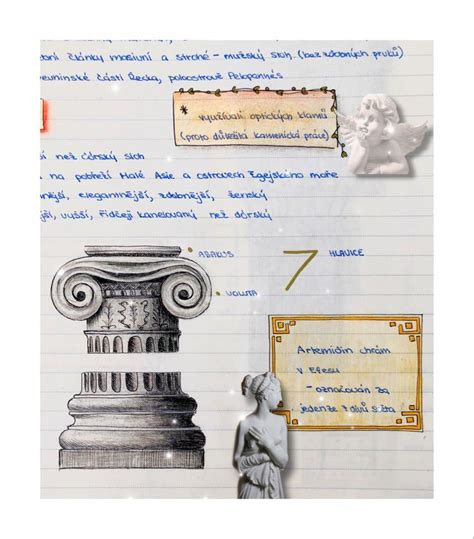 dní články masivní a strohé - mužský sloh (bez zdobných prvků)
části Řecka, poloostrově Peloponnés
* využívání optických klamů
(proto důležitá kamenická práce)
ší než dórský sloh
na pobřeží Malé Asie a ostrovech Egejského moře
nější, elegantnější, zdobnější, ženský
ší, vyšší, řidčeji kanelovaný než dórský
ABAKUS
HLAVICE
VOLUTA
Artemidin chrám
v Efesu
- označován za
jeden ze 7 divů světa